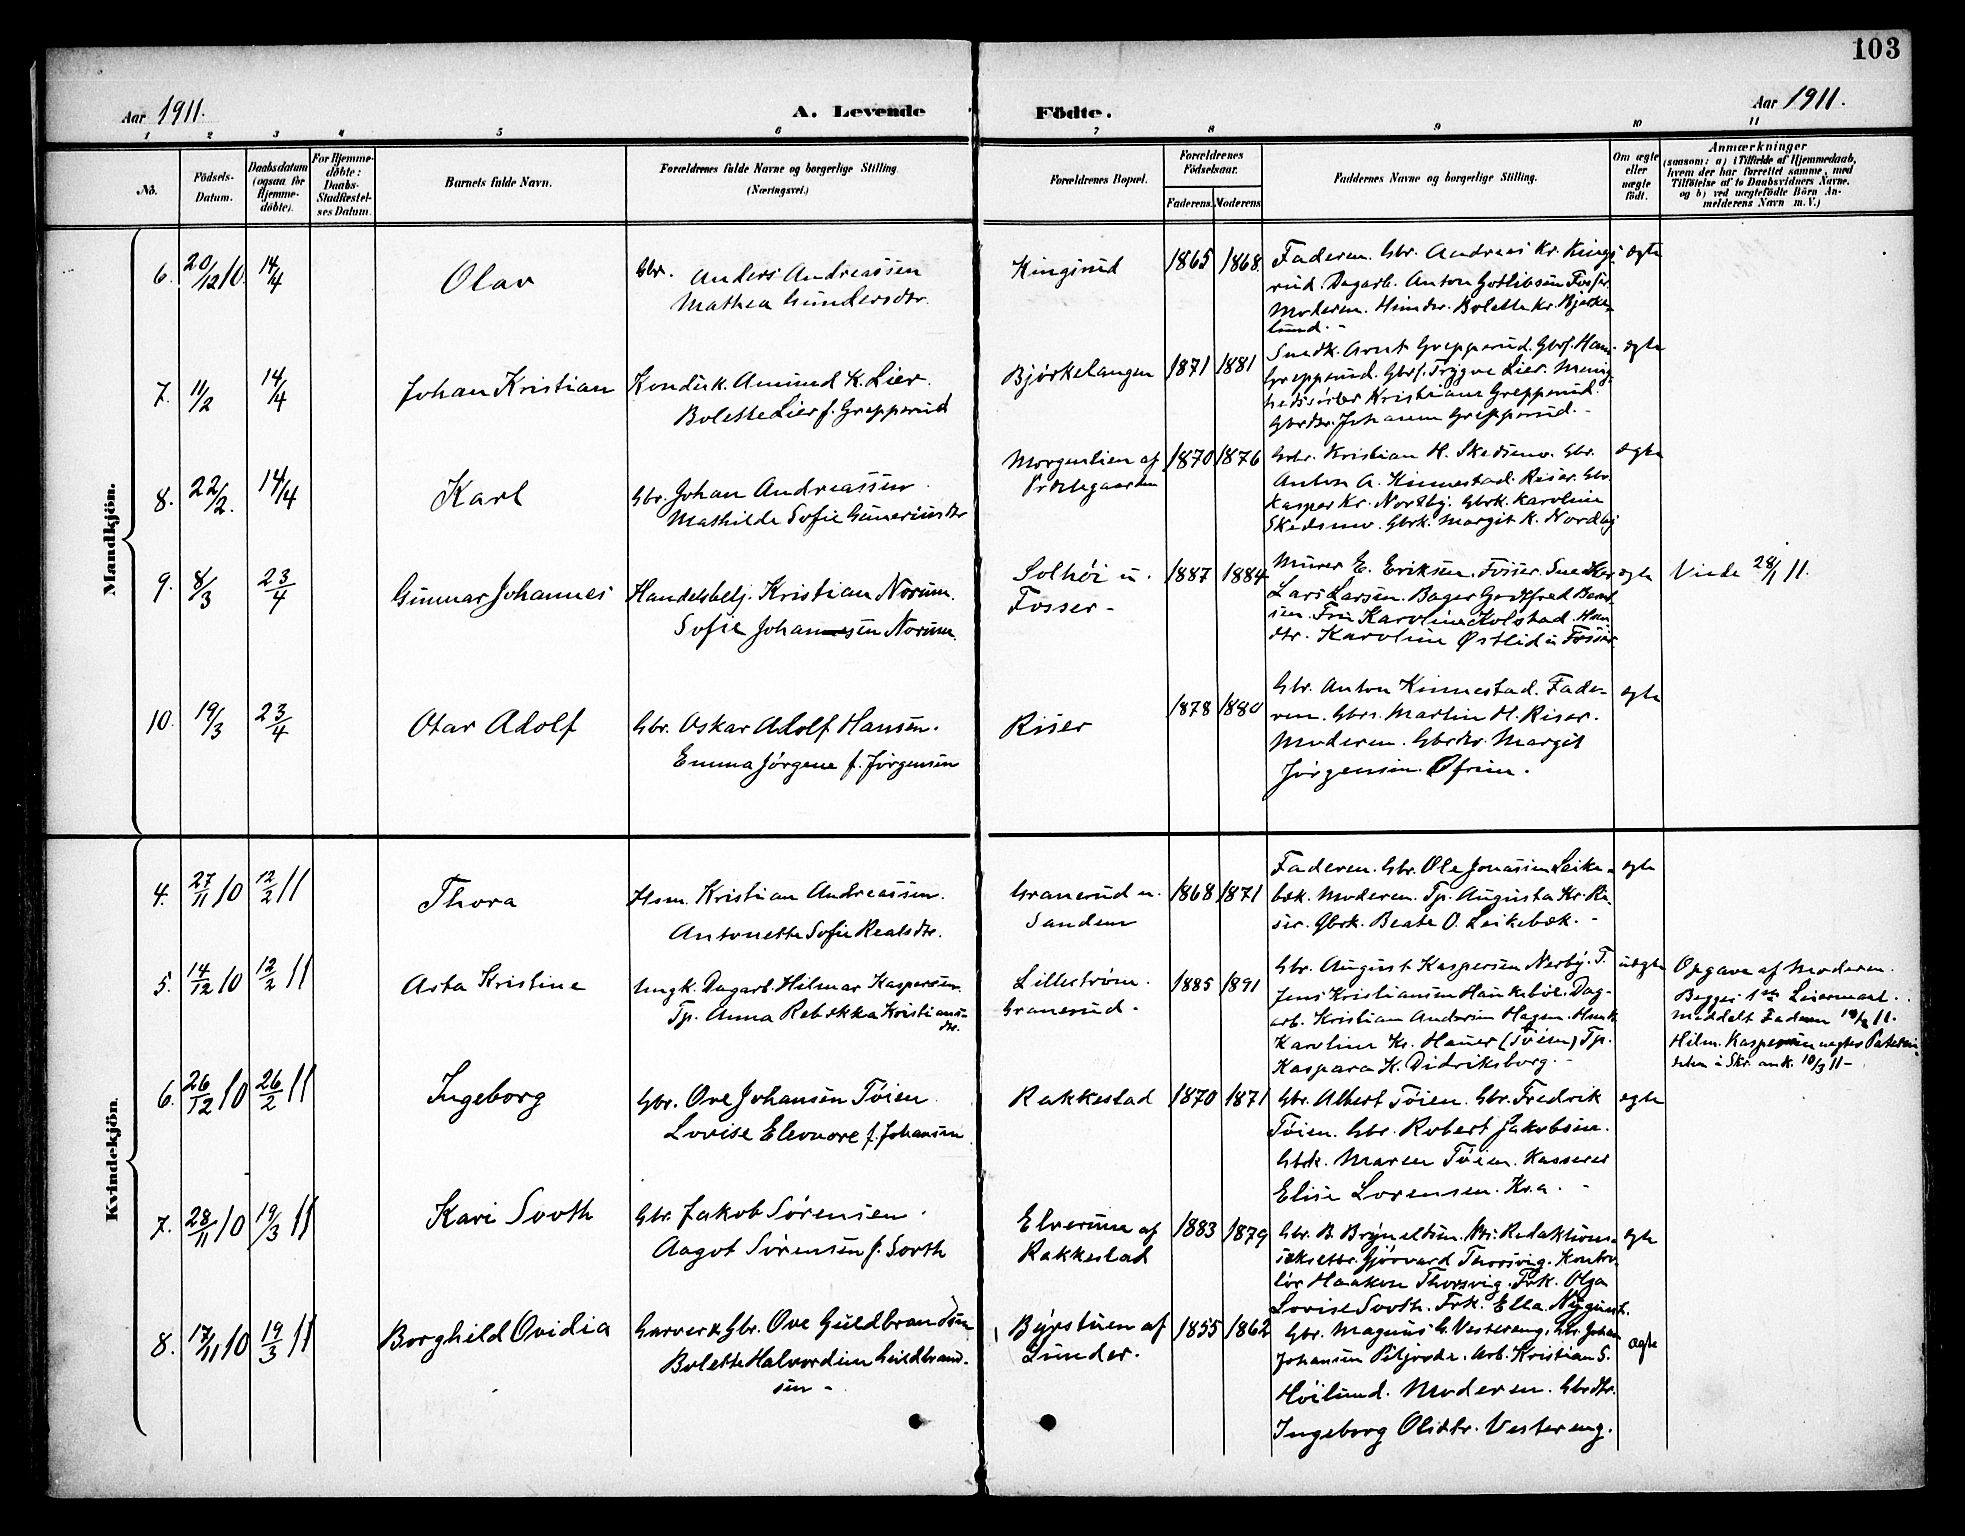 103
Aar 1911.
A. Levende
Födte.
Aar 1911.
1 2 3 4 5 6 7 8 9 10 11
No.
Födsels-
Datum.
Daabsdatum
(ogsaa for
Hjemme-
döbte).
For Hjemme-
döbte:
Daabs-
Stadfæstel-
ses Datum.
Barnets fulde Navn.
Forældrenes fulde Navne og borgerlige Stilling
(Næringsvei.)
Forældrenes Bopæl.
Forældrenes
Födselsaar.
Faderens. Moderens.
Faddernes Navne og borgerlige Stilling.
Om ægte
eller
uægte
födt.
Anmærkninger
(saasom: a) i Tilfælde af Hjemmedaab,
hvem der har forrettet samme, med
Tilföielse af to Daabsvidners Navne,
og b) ved uægtefödte Börn An-
melderens Navn m. V.)
Mandkjön.
6. 20/12 10. 14/4
Olav
Gbr. Anders Andreassen
Mathea Gundersdtr.
Kingsrud
1865 1868.
Faderen. Gbr. Andreas Kr. Kings-
rud. Dagarb. Anton Gotlibsen Fosser
Moderen. Husdtr. Bolette Kr. Bjerke-
lund. -
ægte
7. 11/2 14/4
Johan Kristian
Kondisk. Amund K. Lier.
Bolette Lier f. Grepperud
Bjørkelangen
1871 1881
Snedk. Arnt Grepperud. Gbrs. Hans
Grepperud. Gbrs. Trygve Lier. Menig-
hedssøster Kristiane Grepperud.
Gbrdtr. Johanne Grepperud. -
ægte
8. 22/2. 14/4
Karl
Gbr. Johan Andreassen.
Mathilde Sofie Guneriusdtr
Morgenlien af
Prestegaarden
1870 1876
Gbr. Kristian H. Skedsmo. Gbr.
Anton A. Kinnestad. Riser. Gbr.
Kasper Kr. Nordby. Gbrk. Karoline
Skedsmo. Gbrk. Margit K. Nordby
ægte
9. 8/3 23/4
Gunnar Johannes
Handelsbetj. Kristian Norum.
Sofie Johannesen Norum.
Solhöi u.
Fosser -
1887 1884
Murer E. Eriksen. Fosser. Snedker
Lars Larsen. Bager Godtfred Bernt-
sen. Fru Karoline Kolstad. Hus-
dtr. Karoline Østlid u. Fosser
ægte
Viede 28/1 11.
10. 19/3 23/4
Otar Adolf
Gbr. Oskar Adolf Hansen.
Emma Jørgene f. Jørgensen
Riser
1878 1880
Gbr. Anton Kinnestad. Fade-
ren. Gbrs. Martin H. Riser.
Moderen. Gbrdtr. Margit
Jørgensen. Øfrim.
ægte
Kvindekjön.
4. 27/11 10 12/2 11
Thora
Hsm. Kristian Andreassen.
Antonette Sofie Realsdtr.
Granerud u.
Sandem
1868 1871
Faderen. Gbr. Ole Jonassen Leike-
bæk. Moderen. Tp. Augusta Kr. Ri-
ser. Gbrk. Beate O. Leikebæk. -
ægte
5. 14/12 10 12/2 11
Asta Kristine
Ungk. Dagarb. Hilmar Kaspersen
Tp. Anna Rebekka Kristians-
dtr.
Lillestrøm.
Granerud.
1885 1891
Gbr. August Kaspersen Nerby. T.
Jens Kristiansen Haukeböl. Dag-
arb. Kristian Andersen Hagen. Husk
Karoline Kr. Hauer (Töien) Tp.
Kaspara K. Didriksborg. -
uægte
Opgave af Moderen.
Begges 1ste Leiermaal.
meddelt Faderen 12/2 11.
Hilm. Kaspersen nægter Paterni-
teten i Skr. ank. 10/3 11 -
6. 26/12 10 26/2 11
Ingeborg
Gbr. Ove Johansen Töien
Lovise Eleonore f. Johansen
Rakkestad
1870 1871
Gbr. Albert Töien. Gbr. Fredrik
Töien. Gbr. Robert Jakobsen.
Gbrk. Maren Töien. Kasserer
Elise Lorensen. Kr.a. -
ægte
7. 28/11 10 19/3 11
Kari Sooth
Gbr. Jakob Sørensen.
Aagot Sørensen f. Sooth
Elverum af
Rakkestad
1883 1879
Gbr. B. Brynildsen. Redaktions-
sekretær Gjervard Thorsvig. Kontro-
lør Haakon Thorsvig. Frk. Olga
Lovise Sooth. Frk. Ella Nyquist.
ægte
8. 17/11 10 19/3 11
Borghild Ovidia
Garver & Gbr. Ove Guldbrandsen
Bolette Halvordine Guldbrand-
sen -
Byrstuen af
Lunder.
1855 1862
Gbr. Magnus G. Vestereng. Gbr. Johan
Johansen Piljorde. Arb. Kristian S.
Höilund. Moderen. Gbrdtr.
Ingeborg Olsdtr. Vestereng.
ægte